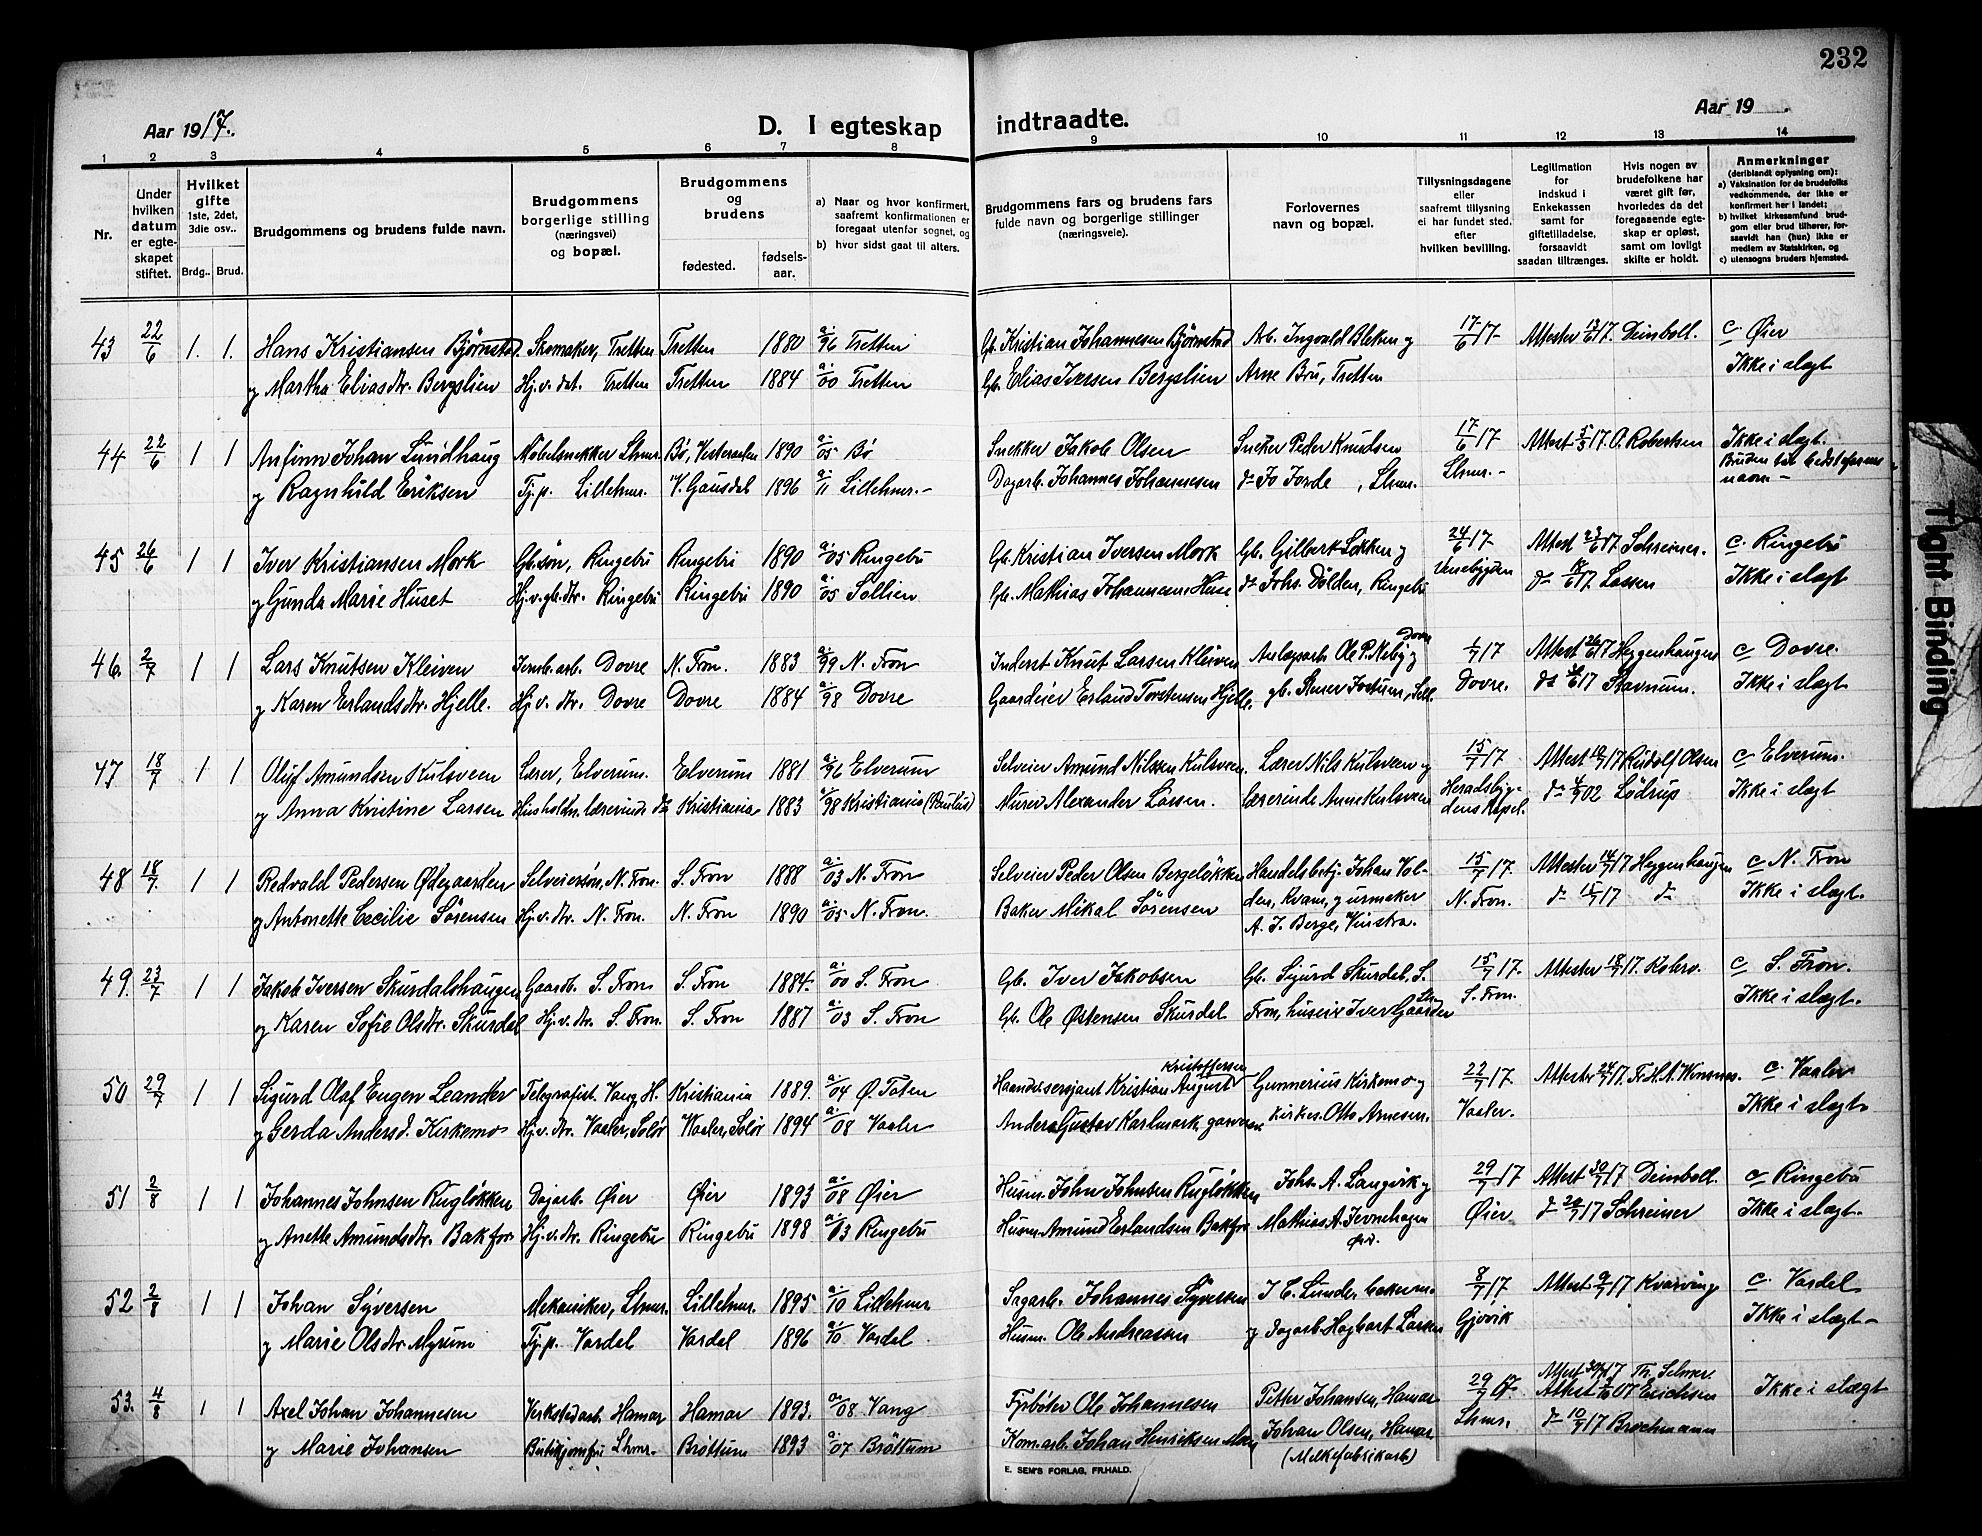 232
Aar 1917.
D. I egteskap indtraadte.
Aar 19
1 2 3 4 5 6 7 8 9 10 11 12 13 14
Nr.
Under hvilken datum er egteskapet stiftet.
Hvilket gifte 1ste, 2det, 3die osv..
Brdg.. Brud.
Brudgommens og brudens fulde navn.
Brudgommens borgerlige stilling (næringsvei) og bopæl.
Brudgommens og brudens
fødested. fødselsaar.
a) Naar og hvor konfirmert, saafremt konfirmationen er foregaat utenfor sognet, og
b) hvor sidst gaat til alters.
Brudgommens fars og brudens fars fulde navn og borgerlige stillinger (næringsveie).
Forlovernes navn og bopæl.
Tillysningsdagene eller saafremt tillysning ei har fundet sted, efter hvilken bevilling.
Legitimation for indskud i Enkekassen samt for giftetilladelse, forsaavidt saadan tiltrænges.
Hvis nogen av brudefolkene har været gift før, hvorledes da det foregaaende egteskap er opløst, samt om lovligt skifte er holdt.
Anmerkninger (deriblandt oplysning om):
a) Vaksination for de brudefolks vedkommende, der ikke er konfirmert her i landet;
b) hvilket kirkesamfund brudgom eller brud tilhører, forsaavidt han (hun) ikke er medlem av Statskirken, og
c) utensogns bruders hjemsted.
43 22/6 1. 1. Hans Kristiansen Bjørnstad. Skomaker, Tretten Tretten 1880 a. 96 Tretten Gb. Kristian Johannesen Bjørnstad Arb. Ingvald Bleken og 17/6 17 Attester 13/6 17. Deinboll. c. Øier
og Martha Eliasdtr. Bergslien Hj.v. dat. Tretten Tretten 1884 a. 00 Tretten Gb. Elias Iversen Bergslien Arne Bru, Tretten Ikke i slægt
44 22/6 1 1 Anfinn Johan Lundhaug Møbelsnekker Lhmr. Bø, Vesteraalen 1890 a. 05 Bø Snekker Jakob Olsen Snekker Peder Knudsen 17/6 17 Attest 5/3 17 O. Robertsen Ikke i slægt.
og Ragnhild Eriksen Tj.p. Lillehmr. V. Gausdal 1896 a. 11 Lillehmr.- Dagarb. Johannes Johannesen do Jo Jorde, Lhmr. Lhmr.- Bruden bær bedstefarens navn -
45 26/6 1 1 Iver Kristiansen Mork Gb.søn, Ringebu Ringebu 1890 a. 05 Ringebu Gb. Kristian Iversen Mork Gb. Gilbert Løkken og 24/6 17. Attest 23/6 17 Schreiner. c. Ringebu
og Gunda Marie Huset Hj.v. gb.dtr. Ringebu Ringebu 1890 a. 05 Sollien Gb. Mathias Johannesen Huse do Johs. Dølden, Ringebu Venebygden do 18/6 17. Lassen Ikke i slægt
46. 2/7 1 1 Lars Knutsen Kleiven Jernb. arb. Dovre N. Fron. 1883 a. 99 N. Fron Inderst Knut Larsen Kleiven Anlægsarb. Ole P. Neby og Dovre 1/7 17 Attest 26/6 17 Heggenhaugen c Dovre.
og Karen Erlandsdtr. Hjelle. Hj.v. dtr. Dovre Dovre 1884 a. 98 Dovre Gaardeier Erland Torstensen Hjelle. Dovre. Stavnum. Ikke i slægt
47 18/7 1 1 Oluf Amundsen Kulsveen Lærer, Elverum. Elverum 1881 a. 96 Elverum Selveier Amund Nilssen Kulsveen. Lærer Nils Kulsveen og 15/7 17 Attest 10/7 17 Rudolf Olsen c Elverum.
og Anna Kristine Larsen Husholdn. lærerinde do Kristiania 1883 a. 98 Kristiania (Paulus) Murer Alexander Larsen. lærerinde Anne Kulsveen Heradsbygdens Kapel. do 4/9 02 Lødrup Ikke i slægt
48 18/7. 1 1 Redvald Pedersen Ødegaarden Selveiersøn, N. Fron. S. Fron 1888 a. 03 N. Fron Selveier Peder Olsen Bergeløkken Handelsbetj. Johan Volden, Kvam, og urmaker A. J. Berge, Vinstra. 15/7 17. Attester 14/7 17 Heggenhaugen c N. Fron
og Antonette Cecilie Sørensen Hj.v. dtr. N. Fron. N. Fron 1890 a. 05 N. Fron. Baker Mikal Sørensen N. Fron. do 15/7 17 do Ikke i slægt.
49. 23/7 1 1 Jakob Iversen Skurdalshaugen Gaardb. S. Fron S. Fron 1884. a. 00 S. Fron Gb. Iver Jakobsen Gb. Sigurd Skurdal, S. 15/7 17. Attester 18/7 17. Kolsrv. c S. Fron.
og Karen Sofie Olsdtr. Skurdal Hj.v. dtr. S. Fron. S. Fron 1887 a. 03 S. Fron Gb. Ole Østensen Skurdal Fron, huseier Iver Gaarder S. Fron. Ikke i slægt.
50 29/7 1 1 Sigurd Olaf Eugen Leander Telegrafist. Vang, H. Kristiania 1889. a. 04 Ø. Toten Haandv.sersjant Kristian August Kristoffersen Gunnerius Kirkemo og 22/7 17. Attester 24/7 17. Fr. H. A. Winsnes. c. Vaaler
og Gerda Andersd. Kirkemo Hj.v. dtr. Vaaler, Solør Vaaler, Solør 1894 a. 08 Vaaler Anders Gustav Karlmark, garver Kirkes. Otto Arnesen. Vaaler. Ikke i slægt
51 2/8 1 1 Johannes Johnsen Rugløkken Dagarb. Øier Øier 1893 a. 08 Øier Husm. John Johnsen Rugløkken Johs. A. Langvik og 29/7 17 Attest 30/7 17 Deinboll. c Ringebu
og Anette Amundsdtr. Bakfor Hj.v. dtr. Ringebu Ringebu 1898 a. 13 Ringebu Husm. Amund Erlandsen Bakfor Mathias A. Jevnehagen Øier. Øier do 29/7 17 Schreiner Ikke i slægt.
52 2/8 1 1 Johan Syversen Mekaniker, Lhmr. Lillehmr. 1895 a. 10 Lillehmr Sagarb. Johannes Syversen J. C. Lunde, bakerm. 8/7 17 Attest 9/7 17 Kvarving c. Vardal
og Marie Olsdtr. Myrum Tj.p. Vardal Vardal 1896 a. 10 Vardal Husm. Ole Andreassen og Dagarb. Hagbart Larsen Gjøvik Ikke i slægt-
53. 4/8 1 1 Axel Johan Johannesen Verkstedarb. Hamar Hamar 1893. a. 08. Vang Fyrbøter Ole Johannesen Petter Johansen, Hamar 29/7 17. Attest 30/7 17 Th. Selmer Ikke i slægt
og Marie Johansen Butikjomfru Lhmr. Brøttum 1893 a. 07 Brøttum Kom. arb. Johan Henriksen Moen Johan Olsen, Hamar (Melkefabrikarb) Lhmr. Attest Erichsen do 10/7 17 Brochmann
E. SEM'S FORLAG, FR.HALD.
Tight Binding